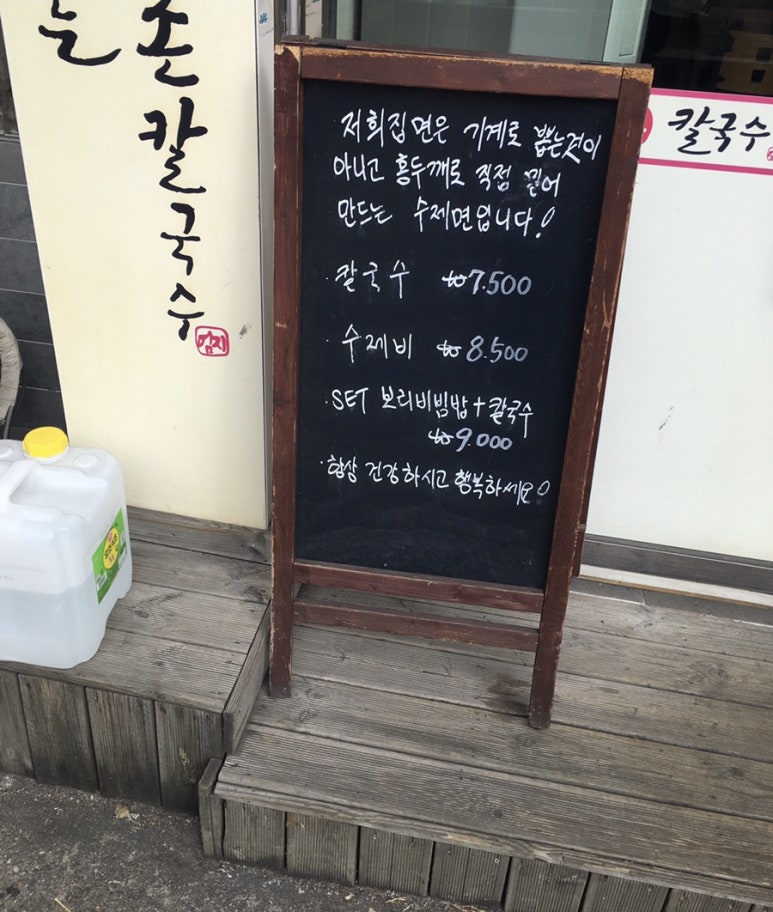 는
손칼국수
저희집면은 기계로 뽑는것이
아니고 홍두깨로 직접 밀어
만드는 수제면입니다!
·칼국수 ₩7.500
·수제비 ₩8.500
·SET 보리비빔밥+칼국수
₩9.000
·항상 건강하시고 행복하세요!
칼국수